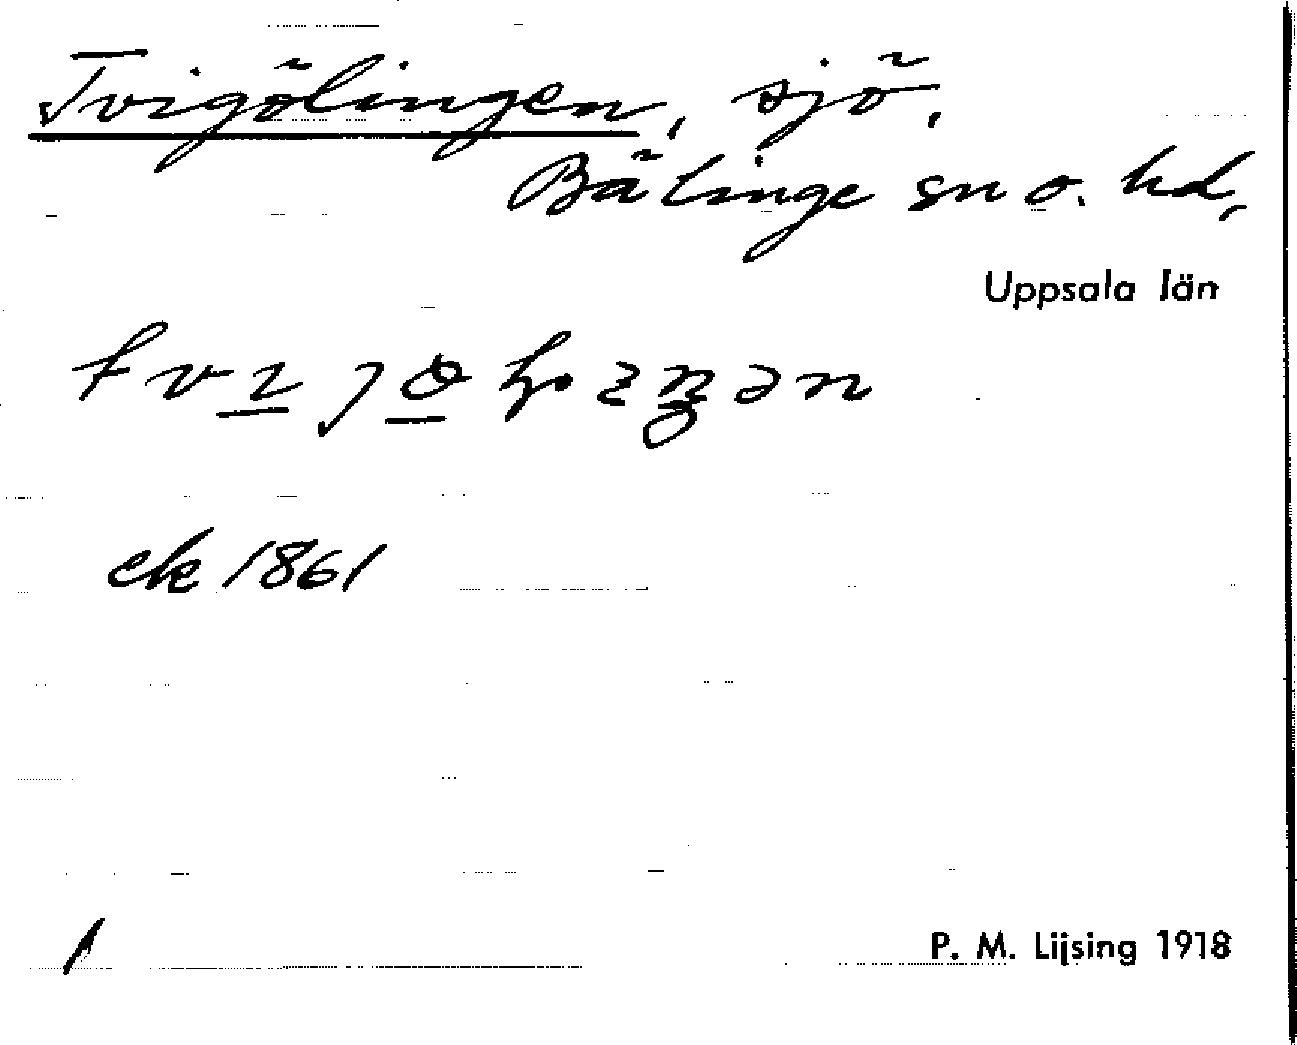 Tvigölingen, sjö,
Bälinge sn o. hd,
Uppsala län
ek 1861
P. M. Lijsing 1918